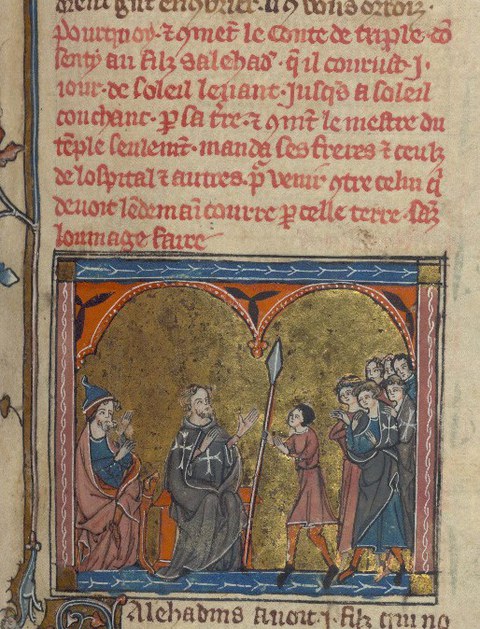 Pourquoy · ⁊ 9ment le Conte de triple · cō
senty au filz salehad̄ · q̄ il courust · j ·
iour · de soleil leuant · Jusqs a soleil
couchant · ꝑ sa t̄re · ⁊ 9mt̄ le mestre du
tēple seulemt̄ · manda ses freres ⁊ ceulz
de lospital ⁊ autres · pr̄ venir 9tre celui q̄
deuoit lēdemaī courre ꝑ celle terre · sāz
doumage faire
Alehadins auoit · j · filz qui no